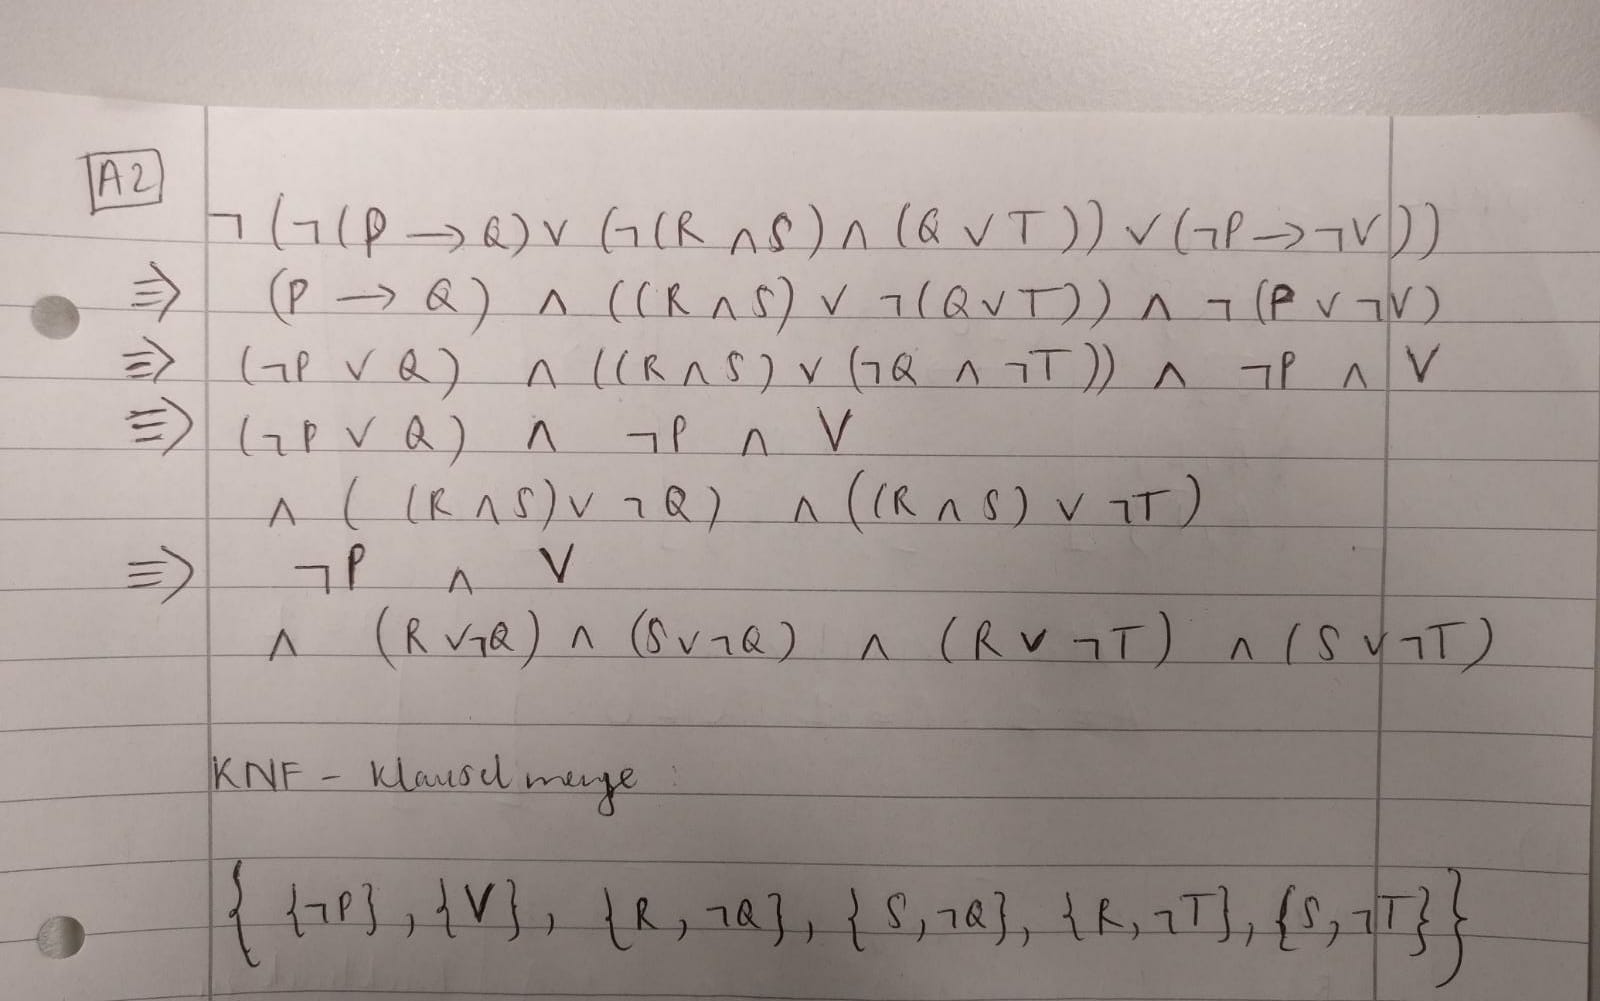 A2
¬(¬(P → Q) ∨ (¬(R ∧ S) ∧ (Q ∨ T)) ∨ (¬P → ¬V))
≡> (P → Q) ∧ ((R ∧ S) ∨ ¬(Q ∨ T)) ∧ ¬(P ∨ ¬V)
≡> (¬P ∨ Q) ∧ ((R ∧ S) ∨ (¬Q ∧ ¬T)) ∧ ¬P ∧ V
≡> (¬P ∨ Q) ∧ ¬P ∧ V
∧ ( (R ∧ S) ∨ ¬Q) ∧ ((R ∧ S) ∨ ¬T)
≡> ¬P ∧ V
∧ (R ∨ ¬Q) ∧ (S ∨ ¬Q) ∧ (R ∨ ¬T) ∧ (S ∨ ¬T)
KNF - Klauselmenge :
{ {¬P}, {V}, {R, ¬Q}, {S, ¬Q}, {R, ¬T}, {S, ¬T}}